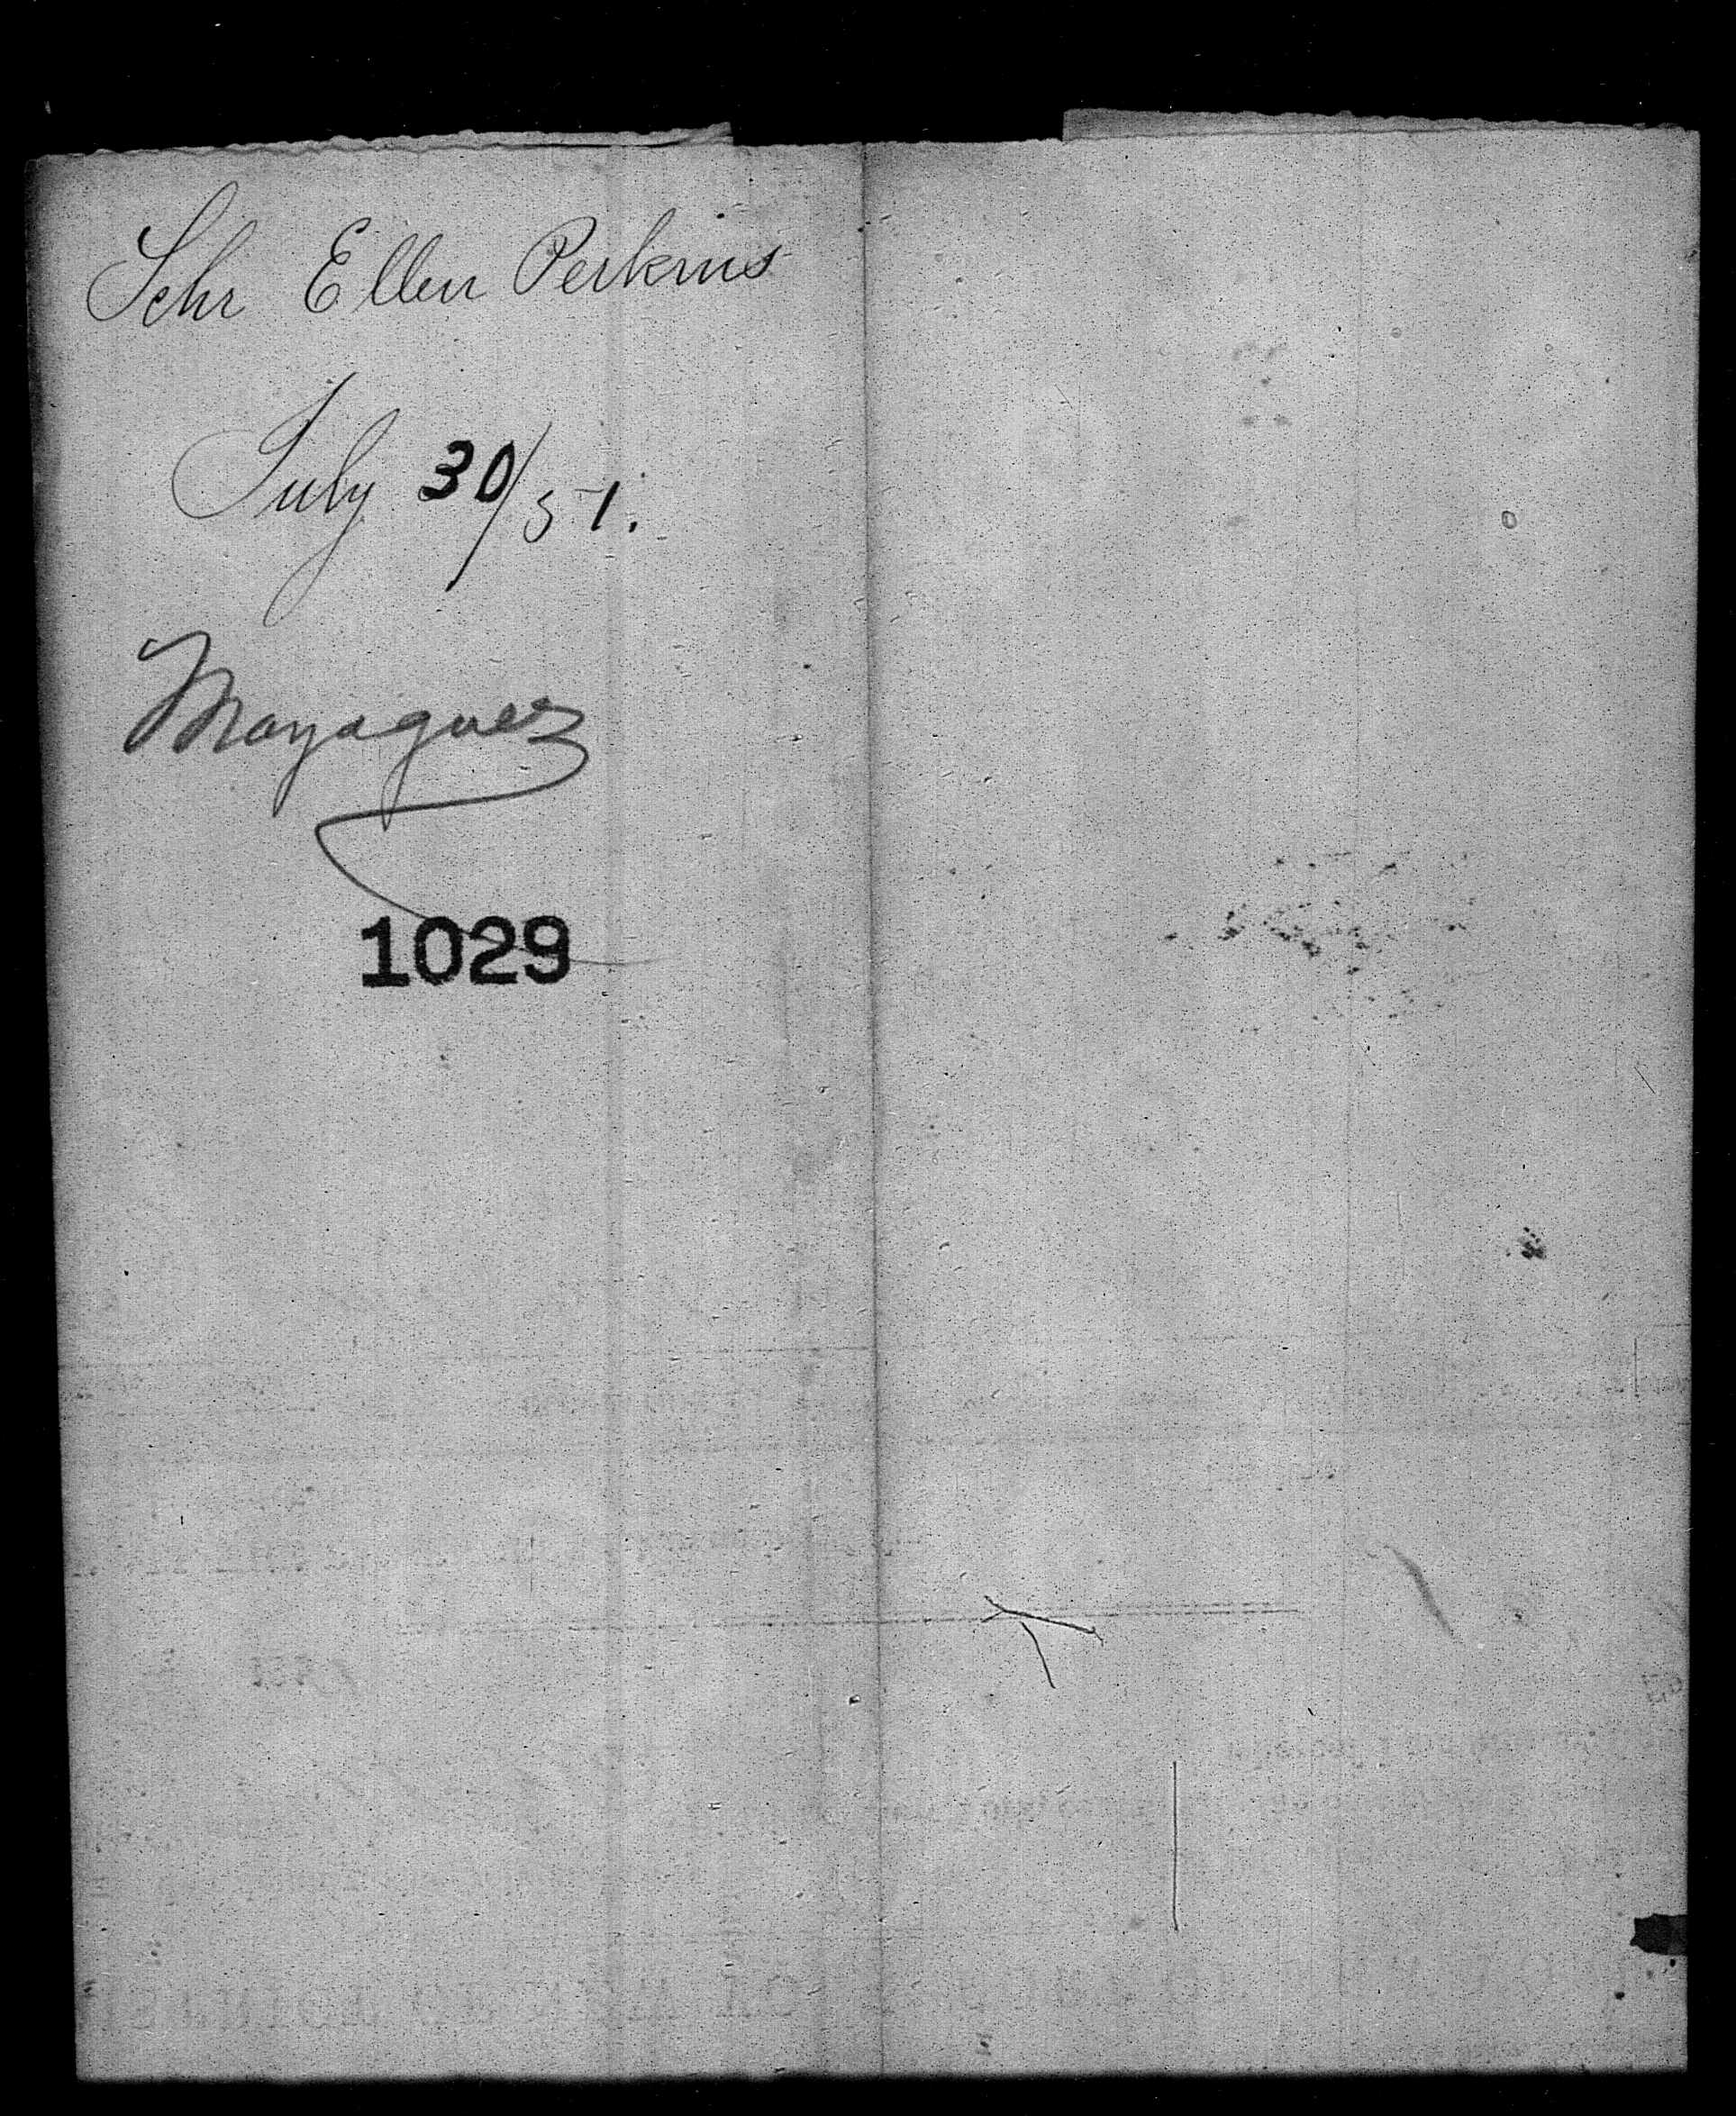 Schr Ellen Perkins
July 30/51.
Mayaguez
1029